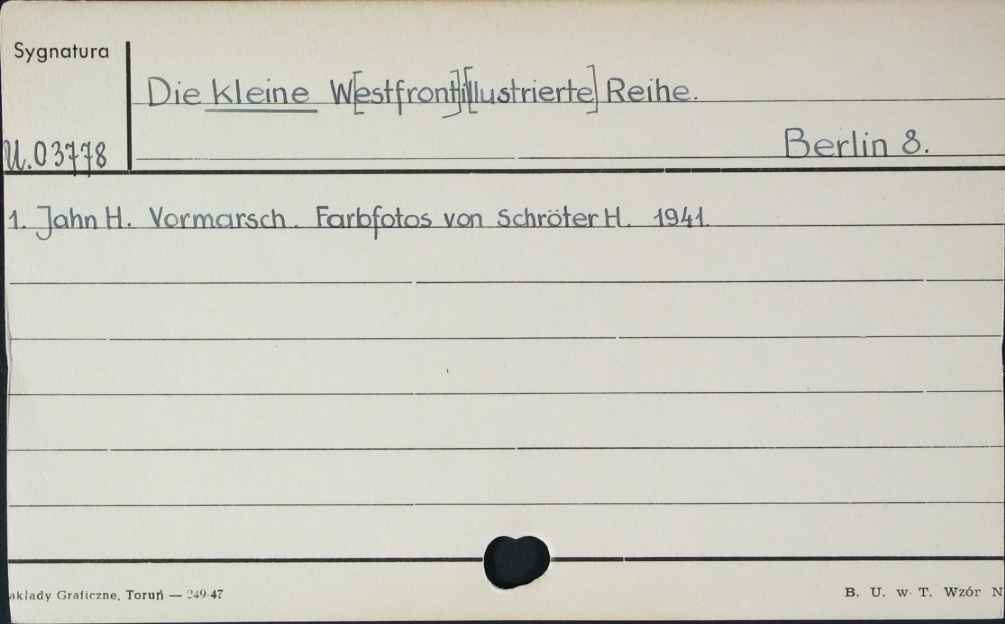 Sygnatura
Die kleine W[estfront]i[llustrierte] Reihe.
U.03778
Berlin 8.
1. Jahn H. Vormarsch. Farbfotos von Schröter H. 1941.
akłady Graficzne, Toruń — 249-47
B. U. w T. Wzór N